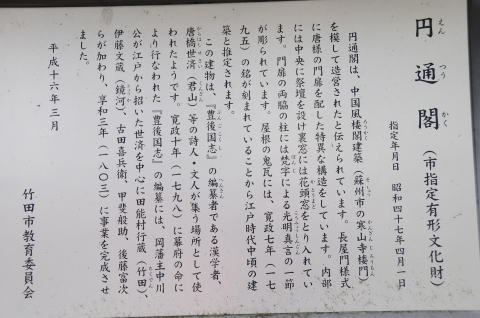 円通閣（市指定有形文化財）
えんつうかく
指定年月日　昭和四十七年四月一日
円通閣は、中国風楼閣建築（蘇州市の寒山寺楼門）
を模して造営されたと伝えられています。長屋門様式
に唐様の門扉を配した特異な構造をしています。内部
には中央に祭壇を設け裏窓には花頭窓をとり入れてい
ます。門扉の両脇の柱には梵字による光明真言の一節
が彫られています。屋根の鬼瓦には、寛政七年（一七
九五）の銘が刻まれていることから江戸時代中頃の建
築と推定されます。
この建物は、『豊後国志』の編纂者である漢学者、
唐橋世済（君山）等の詩人・文人が集う場所として使
われたようです。寛政十年（一七九八）に幕府の命に
より行なわれた『豊後国志』の編纂には、岡藩主中川
公が江戸から招いた世済を中心に田能村行蔵（竹田）、
伊藤文蔵（鏡河）、古田喜兵衛、甲斐般助、後藤富次
らが加わり、享和三年（一八〇三）に事業を完成させ
ました。
平成十六年三月
竹田市教育委員会